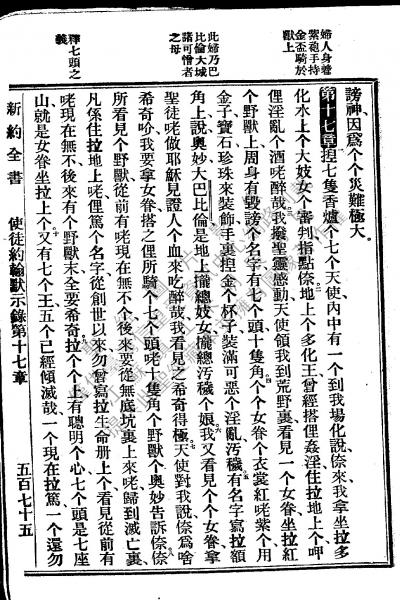 婦人身着
紫袍手持
金盃騎於
獸上
謗神、因爲个个災難極大。
第十七章 揑七隻香爐个七个天使內中有一个到我場化說、倷來、我拿坐拉多
化水上个大妓女个審判指點倷、地上个多化王曾經搭俚姦淫、住拉地上个呷
俚淫亂个酒咾醉哉、我撥聖靈感動天使領我到荒野裏看見一个女眷坐拉紅
个野獸上、周身有毀謗个名字、有七个頭十隻角、个个女眷个衣裳紅咾紫个、用
金子寶石珍珠來裝飾、手裏揑金个杯子裝滿可惡个淫亂汚穢、有名字寫拉額
此婦乃巴
比倫大城
諸可憎者
之母
角上說、奧妙大巴比倫、是地上攏總妓女攏總汚穢个娘、我又看見个个女眷拿
聖徒咾做耶穌見證人个血來吃醉哉、我看見之希奇得極、天使對我說、倷爲啥
希奇吤、我要拿女眷搭之俚所騎个七个頭咾十隻角个野獸个奧妙告訴倷、倷
所看見个野獸、從前有咾現在無不个、後來要從無底坑裏上來咾歸到滅亡裏、
凡係住拉地上咾俚篤个名字從創世以來勿曾寫拉生命册上个、看見從前有
咾現在無不後來有个野獸末、全要希奇拉、个个上有聰明个心、七个頭是七座
釋七頭之
義
山就是女眷坐拉上个、又有七个王、五个已經傾滅哉、一个現在拉篤、一个還勿
新約全書 使徒約翰默示錄第十七章 五百七十五